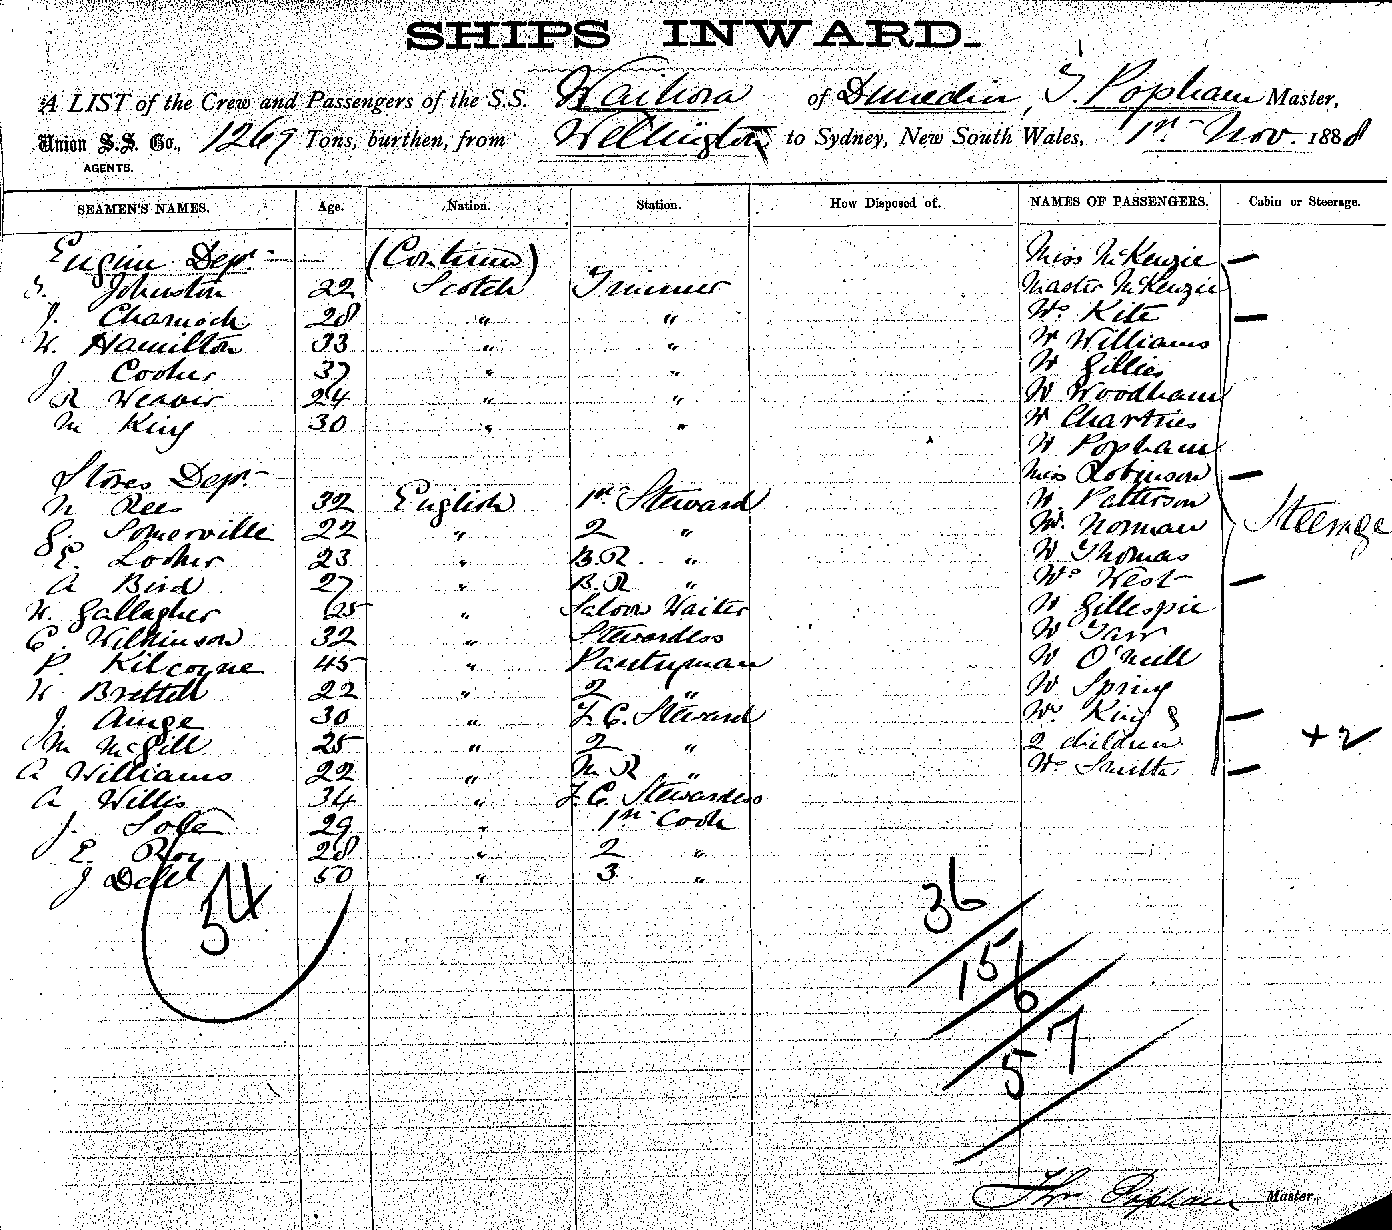 SHIPS INWARD.
A LIST of the Crew and Passengers of the S.S. Waihora of Dunedin, T. Popham Master,
Union S.S. Co., 1269 Tons, burthen, from Wellington to Sydney, New South Wales, 1st Nov. 1888
AGENTS.
SEAMEN'S NAMES. Age. Nation. Station. How Disposed of. NAMES OF PASSENGERS. Cabin or Steerage.
Engine Dept (Continued) Miss McKenzie
Johnston 22 Scotch Trimmer Master McKenzie
J. Charnock 28 " " Kite
W. Hamilton 33 " " Williams
J Cocker 37 " " Gillies
R Weaver 24 " " Woodham
M King 30 " " Chartries
Popham
Stores Dept Miss Robinson
Rees 32 English 1st Steward Patterson
G. Somerville 22 " 2 " Norman Steerage
E. Looker 23 " B.R. " Thomas
A Bird 27 " B.R " West
W. Gallagher 25 " Saloon Waiter Gillespie
C. Wilkinson 32 " Stewardess Tarr
P. Kilcoyne 45 " Pantryman O'Neill
W Brettell 22 " 2 " Spring
J. Ainge 30 " F.C. Steward King &
M McGill 25 " 2 " 2 children +2
A Williams 22 " M R " Smith
A Willis 34 " F.C. Stewardess
J. 29 " 1st Cook
E. Roy 28 " 2 "
J Dell 50 " 3 "
54
36
156
57
Thos Popham Master.